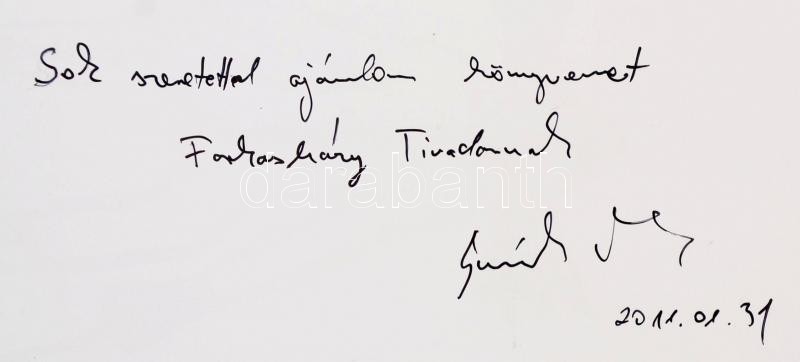 Sok szeretettel ajánlom könyvemet
Farkasházy Tivadarnak
2011.01.31
darabanth